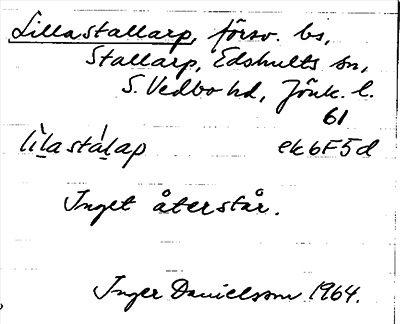 Lilla Stallarp, försv. bs,
Stallarp, Edshults sn,
S. Vedbo hd, Jönk. l.
61
lìlastálap ek 6F5d
Inget återstår.
Inger Danielsson 1964.